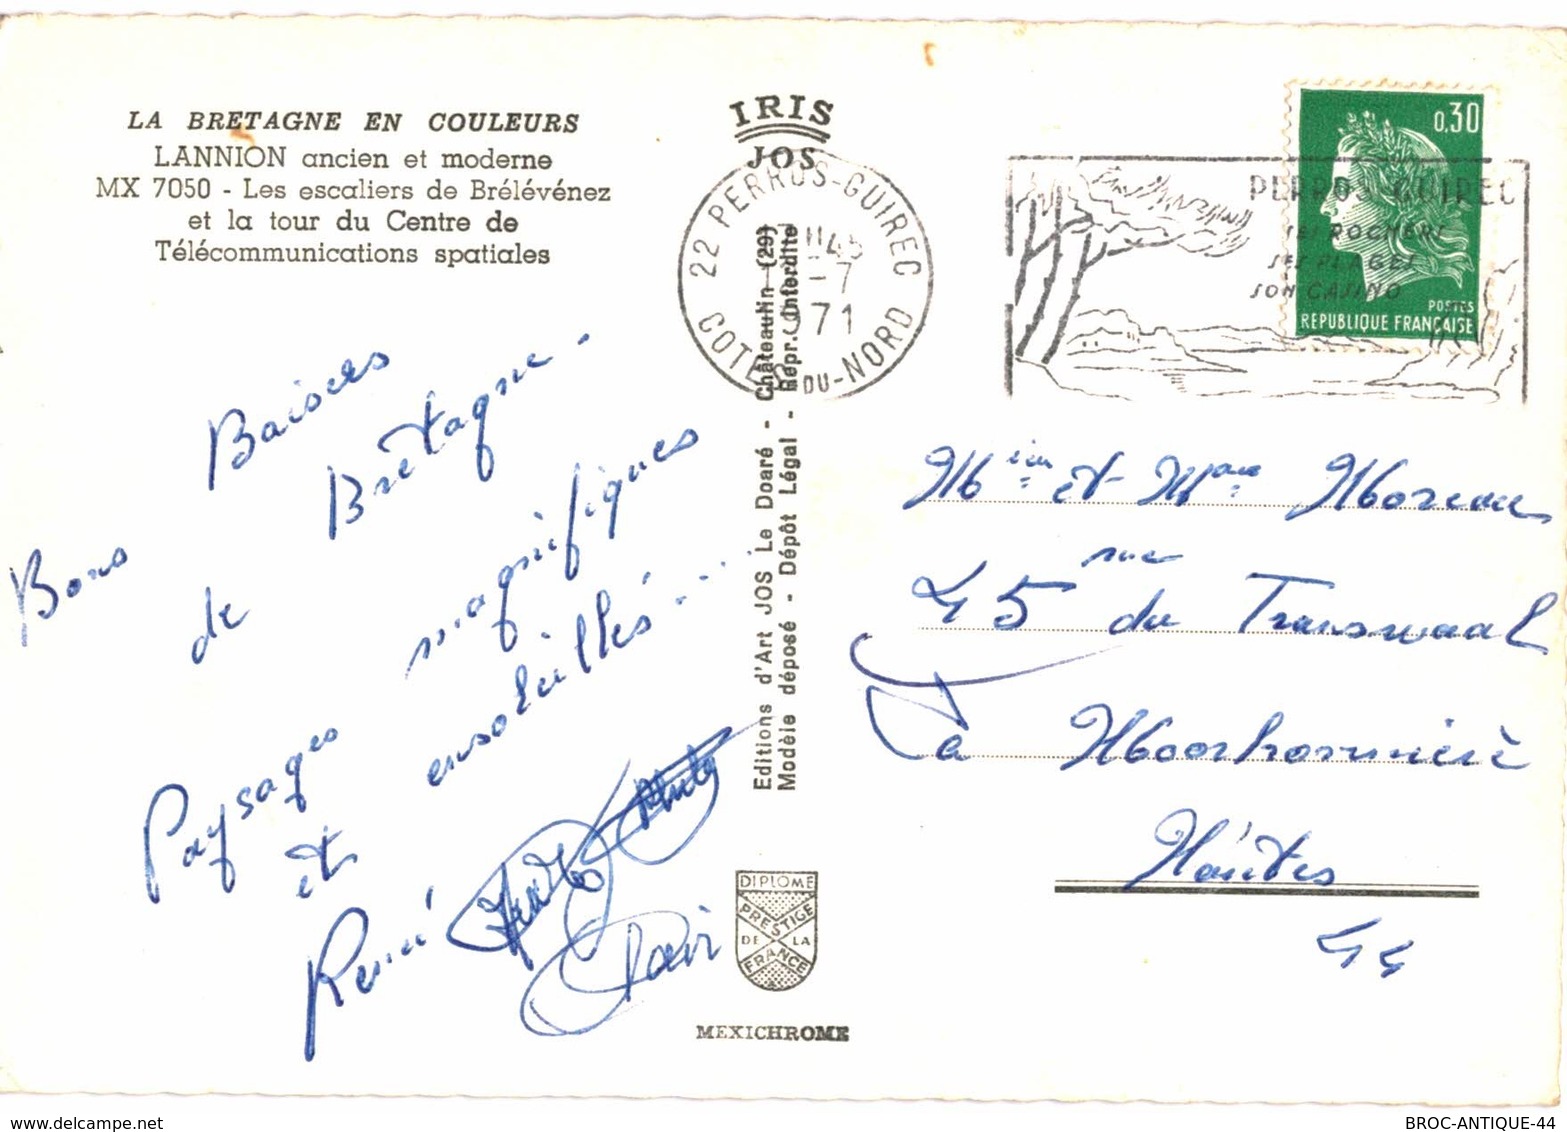 LA BRETAGNE EN COULEURS
LANNION ancien et moderne
MX 7050 - Les escaliers de Brélévénez
et la tour du Centre de
Télécommunications spatiales
IRIS
JOS
22 PERROS-GUIREC
-7
1971
COTES-DU-NORD
PERROS-GUIREC
SES ROCHERS
SES PLAGES
SON CASINO
0,30
POSTES
REPUBLIQUE FRANÇAISE
Bons Baisers
de Bretagne.
Paysages magnifiques
et ensoleillés...
René
Editions d'Art JOS Le Doaré - Châteaulin (29)
Modèle déposé - Dépôt Légal - Repr. Interdite
et Moreau
45 rue du Transwaal
La
Nantes
44
DIPLOME
PRESTIGE
DE LA
FRANCE
MEXICHROME
delcampe.net
BROC-ANTIQUE-44